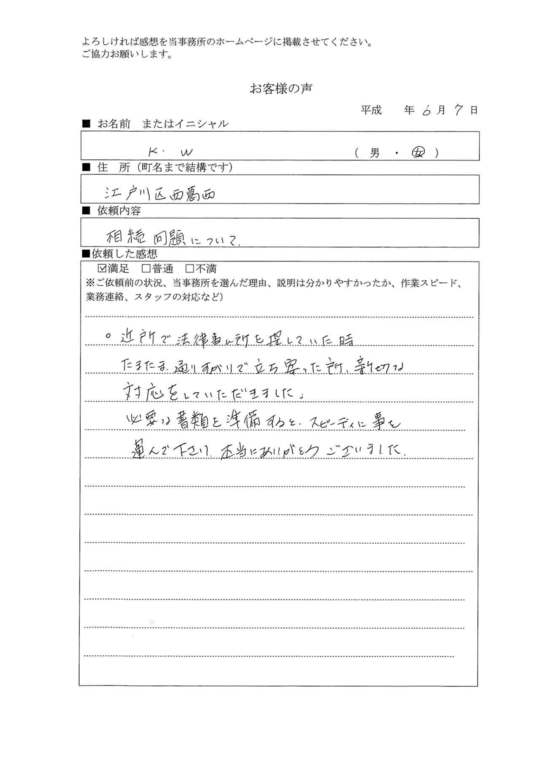 よろしければ感想を当事務所のホームページに掲載させてください。
ご協力お願いします。
お客様の声
平成 年 6 月 7 日
■ お名前 またはイニシャル
K・W ( 男 ・ 女 )
■ 住 所 (町名まで結構です)
江戸川区西葛西
■ 依頼内容
相続問題について
■依頼した感想
☑満足 □普通 □不満
※ご依頼前の状況、当事務所を選んだ理由、説明は分かりやすかったか、作業スピード、
業務連絡、スタッフの対応など)
○ 近所で法律事ム所を探していた時
たまたま通りすがりで立ち寄った所、親切な
対応をしていただきました。
必要な書類を準備すると、スピーディに事を
運んで下さり、本当にありがとうございました。